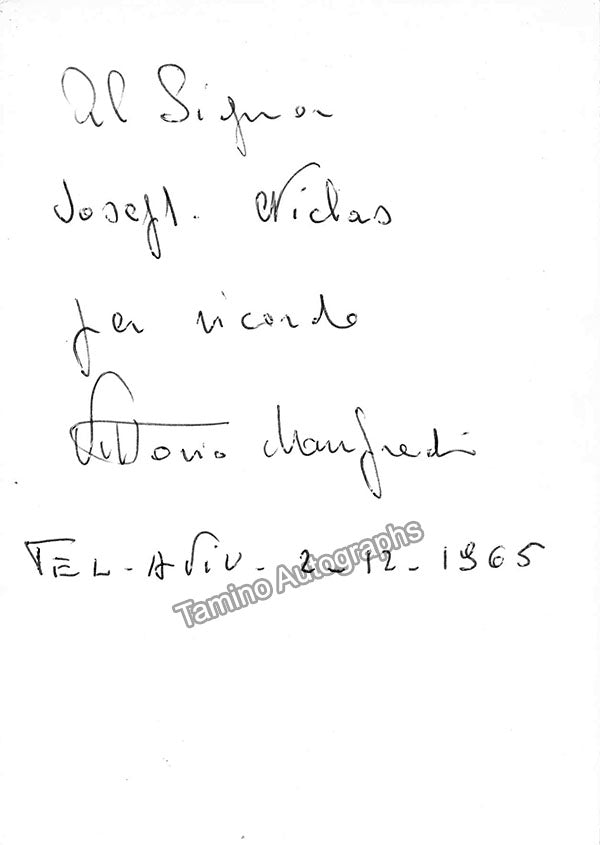 Al Signor
Josef. Niclas
per ricordo
Vittorio Manfredi
TEL-AVIV-2-12-1965
Tamino Autographs